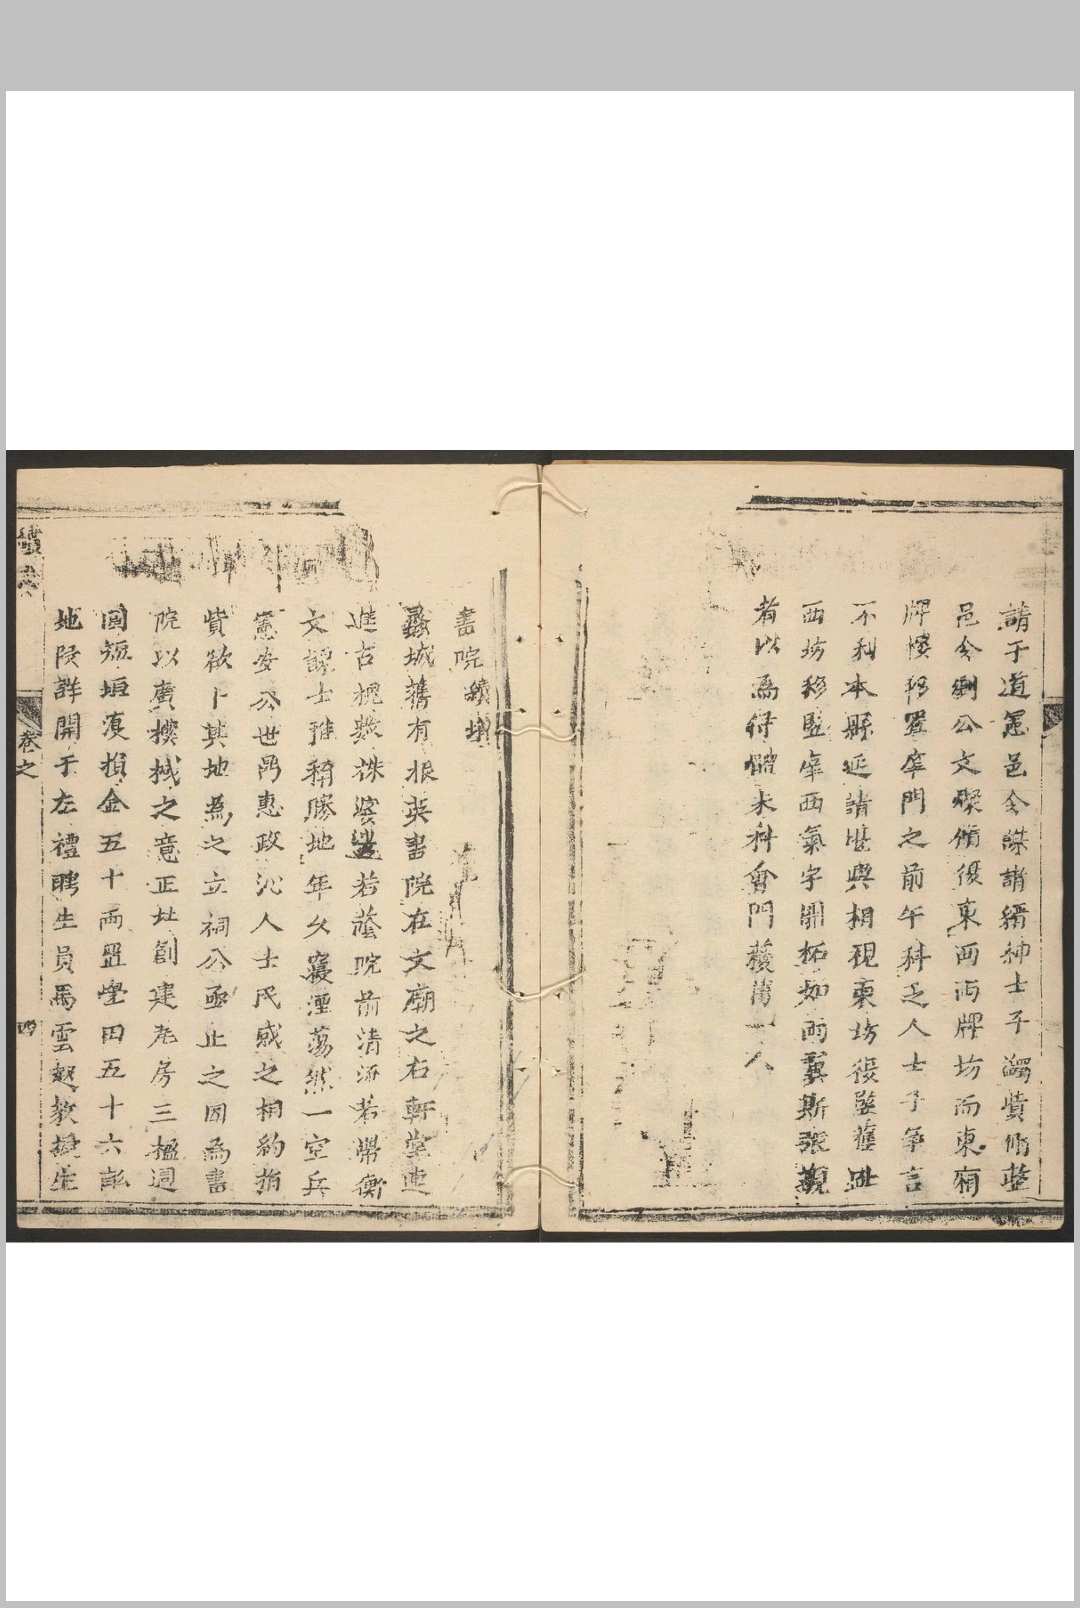 請于道憲邑令謀諸縉紳士子蠲貲脩整
邑令劉公文燦脩復東西兩牌坊而東廂
牌樓移置庠門之前午科乏人士子爭言
不利本縣延請堪輿相視東坊復豎舊址
西坊移豎庠西氣宇開拓如兩翼斯張觀
者以為得體未科會門獲雋一人
書院續增
彝城舊有振英書院在文廟之右軒堂連
進古槐數株婆娑若蓋院前清流若帶衡
文課士雅稱勝地年久寢湮蕩然一空兵
憲安公世鼎惠政沁人士民感之相約捐
貲欲卜其地為之立祠公亟止之因為書
院以廣樸棫之意正址創建瓦房三楹週
圍短垣復捐金五十兩置學田五十六畝
地段詳開于左禮聘生員馬雲 教 生
續
卷之
四